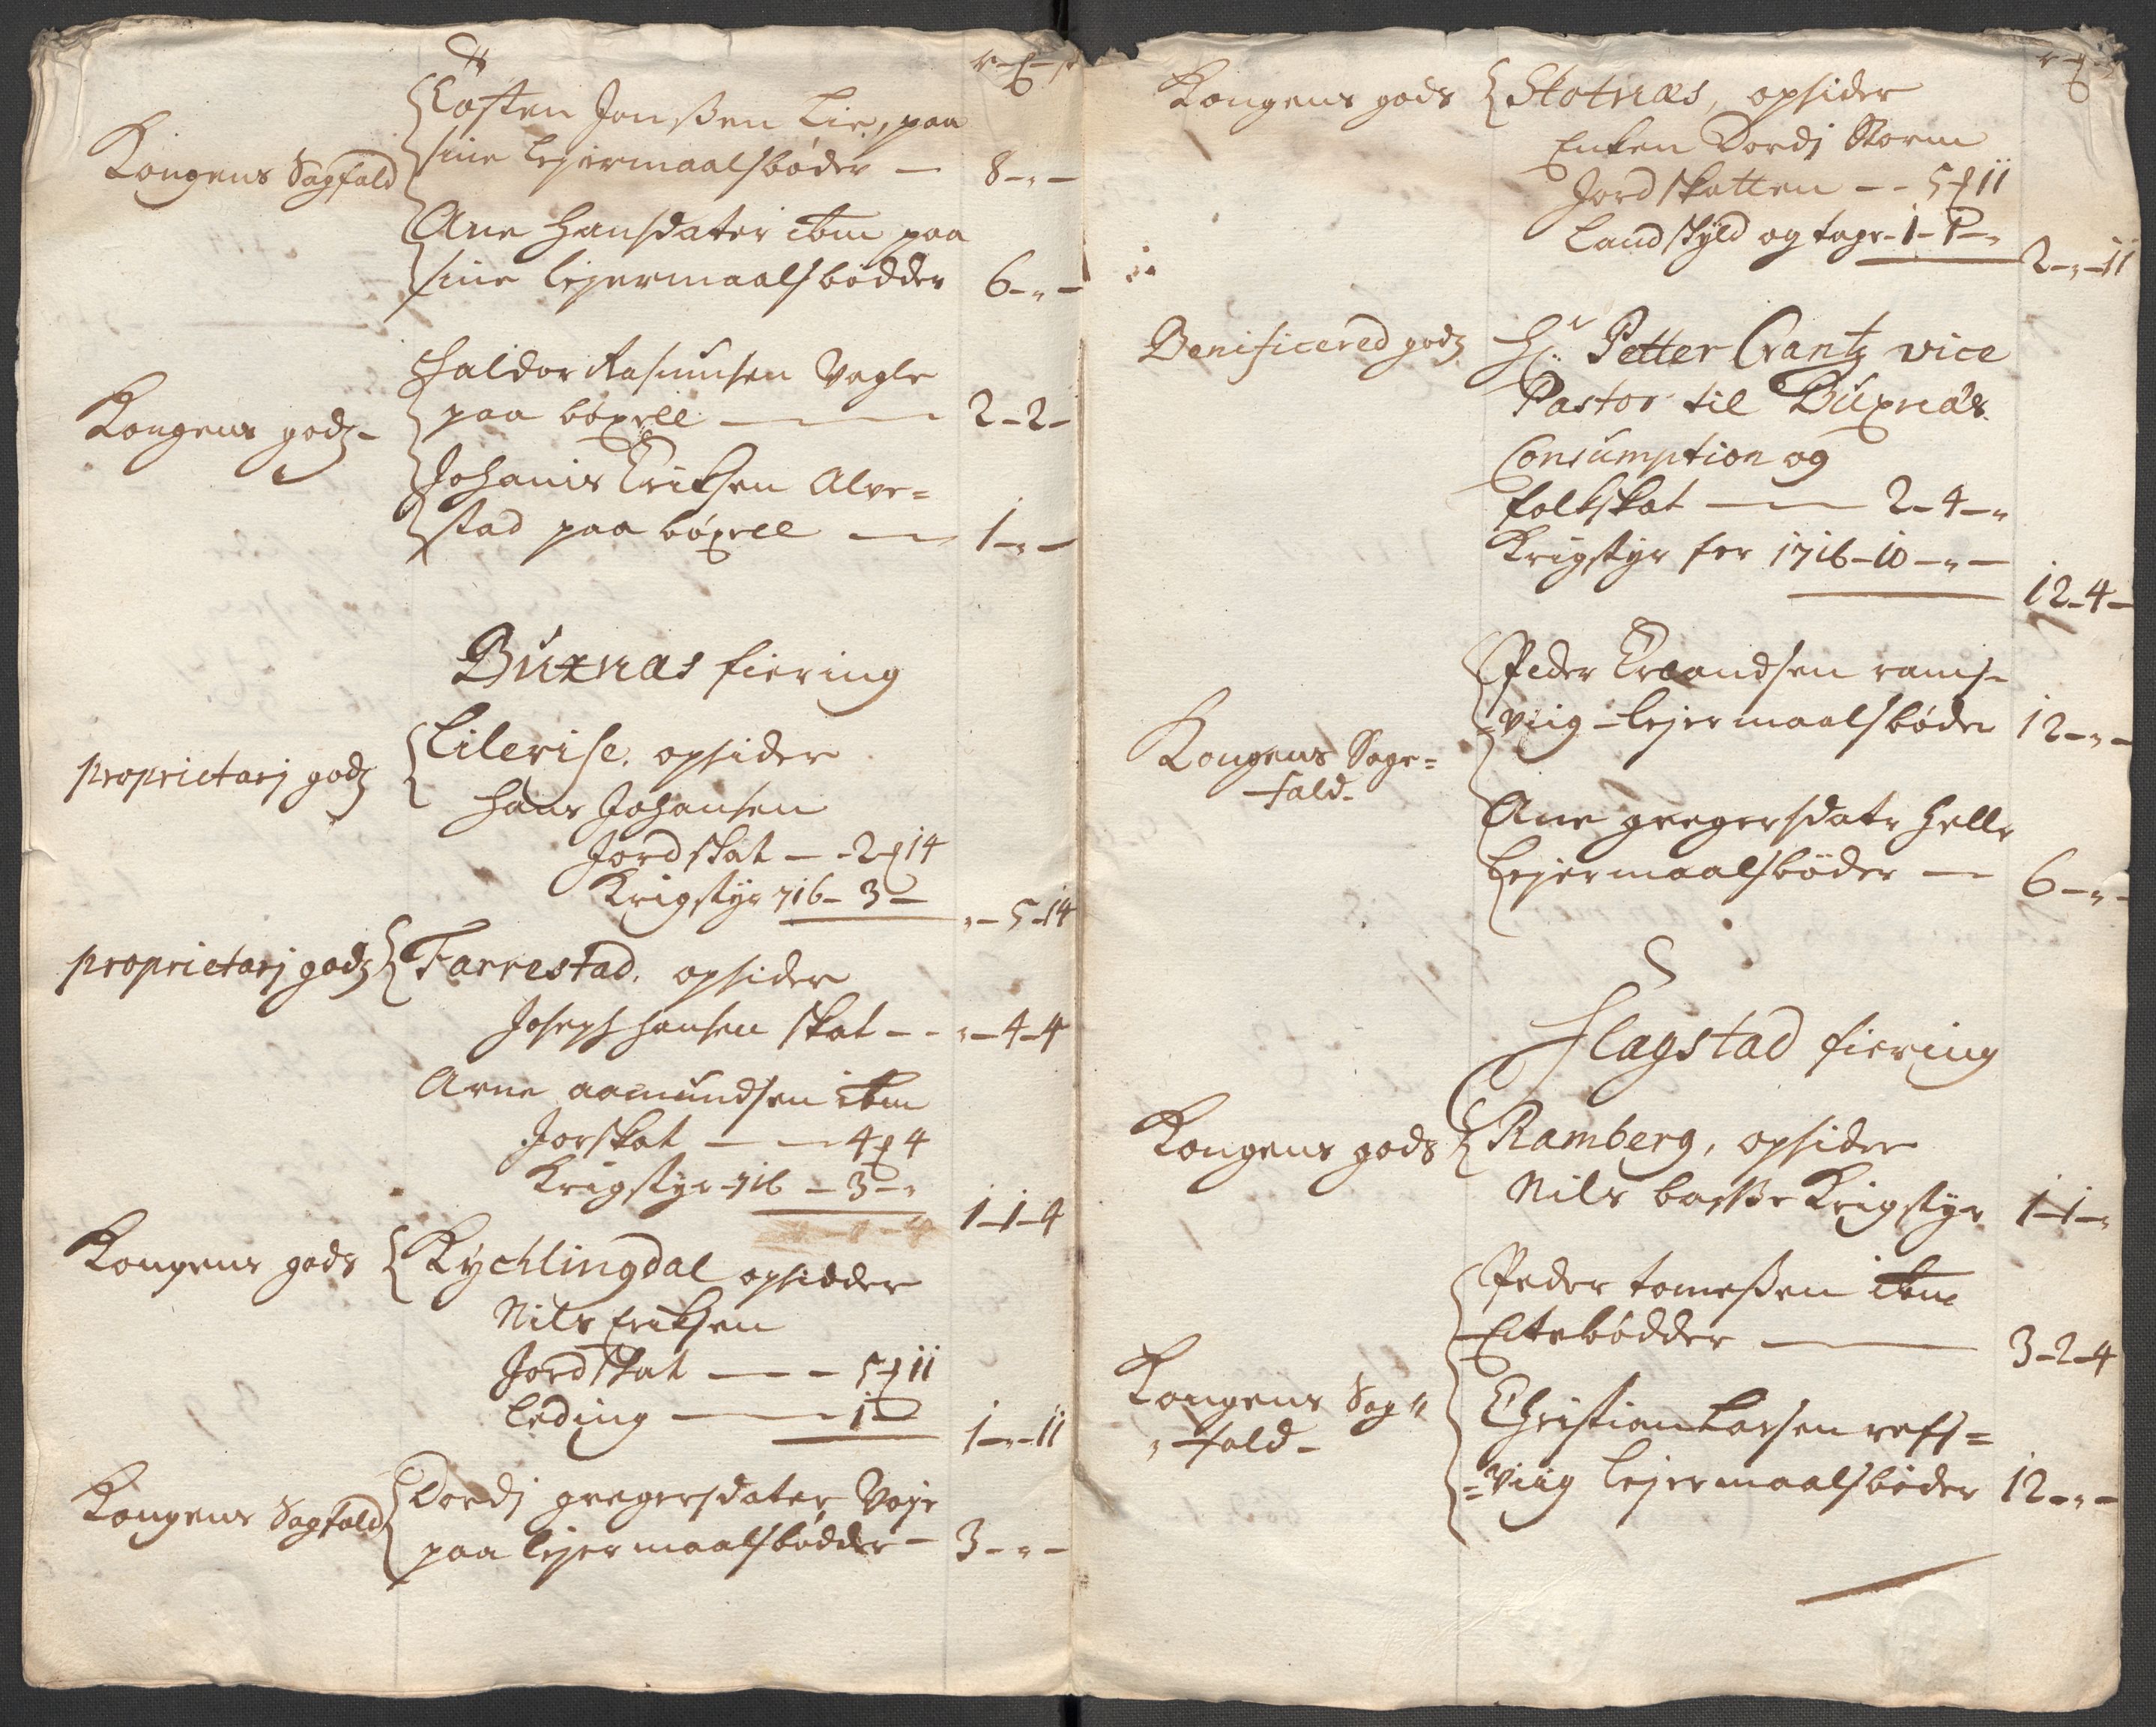 Kongens Sagfald
Costen Jonßen Lie, paa
sine lejermaalsbøder — 8-„-
Ane Hansdater ibm paa
sine lejermaalsbødder 6-„-
Kongens godz-
Haldor Rasmusen Vagle
paa bøxell — 2-2-
Johanis Eriksen Alve=
stad paa bøxell — 1-„-
Buxnæs fiering
proprietarj godz
Lilerise. opsider
Hans Johansen
Jordskat — -2 14
Krigstyr 716- 3-
„-5-14
proprietarj godz
Farrestad. opsider
Joseph Hansen skat - - „-4-4
Arne aamundsen ibm
Jorskat — 4 4
Krigstyr-716 - 3-„
1-1-4
Kongens gods
Kychlingdal opsidder
Nils Eriksen
Jordskat — - 5 11
Leding — 1-
1-„-11
Kongens Sagfald
Dordj gregersdater Voje
paa lejermaalsbødder - 3-„-
Kongens gods
Skotnæs, opsider
Enken Dordj Storm
Jordskatten - - 5 11
Landskyld og tage-1-1-„
2-„-11
Benificered godz
Hr. Petter Crantz vice
Pastor til Buxnæs
Consumption og
folkskat — 2-4-„
Krigstyr for 1716-10-„-
12-4-
Kongens Sage=
fald-
Peder Erlandsen rams-
-viig - lejermaalsbøder 12-„-
Ane gregersdatr Helle
Lejermaalsbøder — 6-„-
Flagstad fiering
Kongens gods
Ramberg, opsider
Nils basse Krigstyr 1-1-„
Kongens Sag„
„fald-
Peder tomeßen ibm
bødder — 3-2-4
Christian Larsen refs=
=viig lejermaalsbøder 12-„-